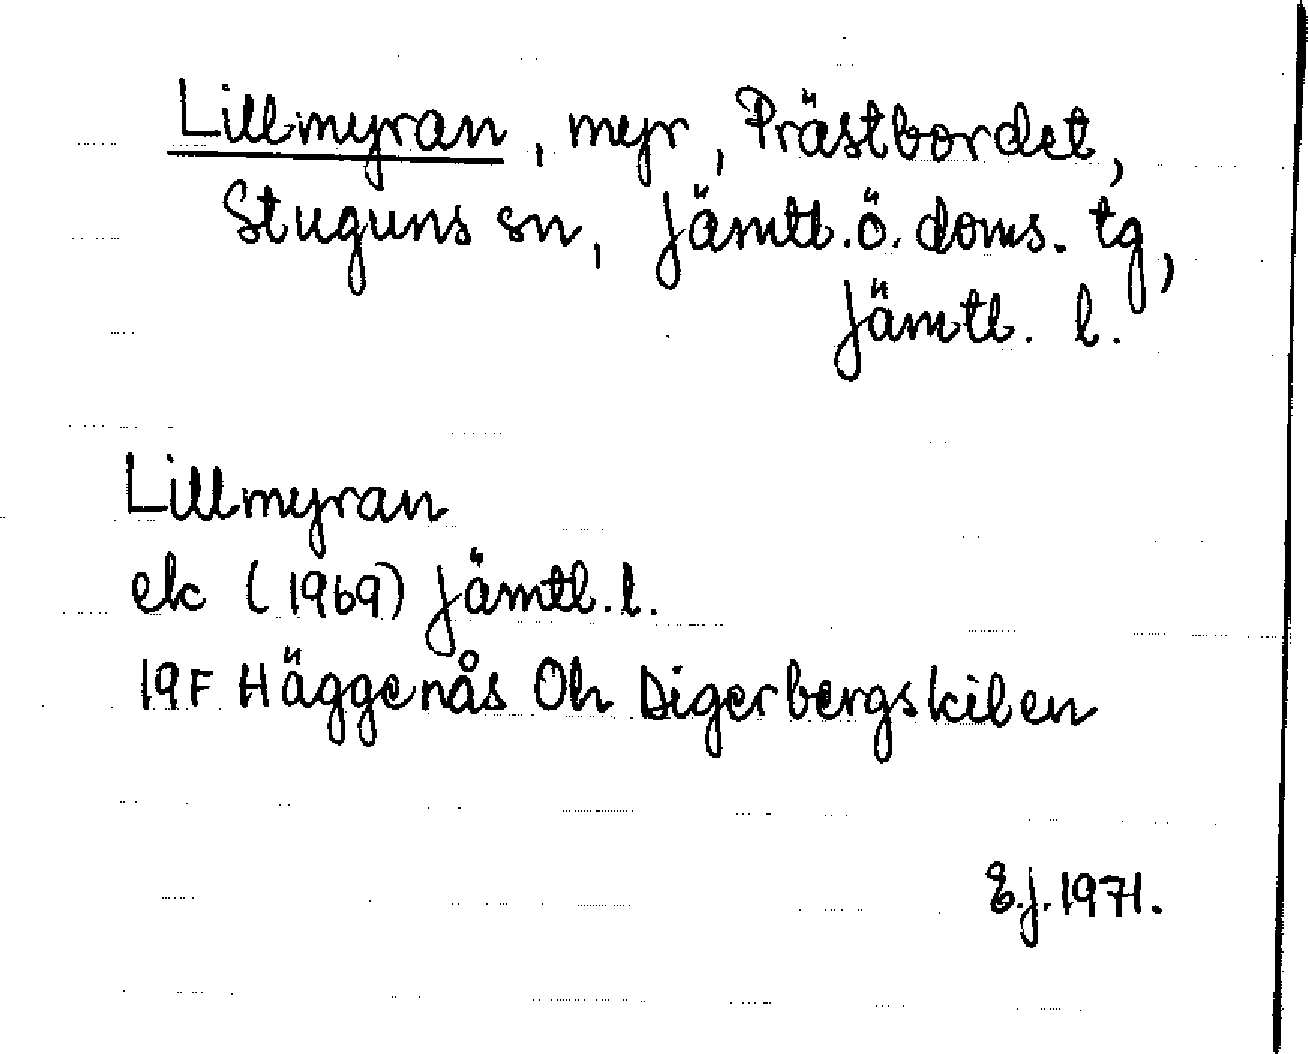 Lillmyran, myr, Prästbordet,
Stuguns sn, Jämtl. ö. doms. tg,
Jämtl. l.
Lillmyran
ek (1969) Jämtl. l.
19F Häggenås 0h Digerbergskilen
E.J. 1971.